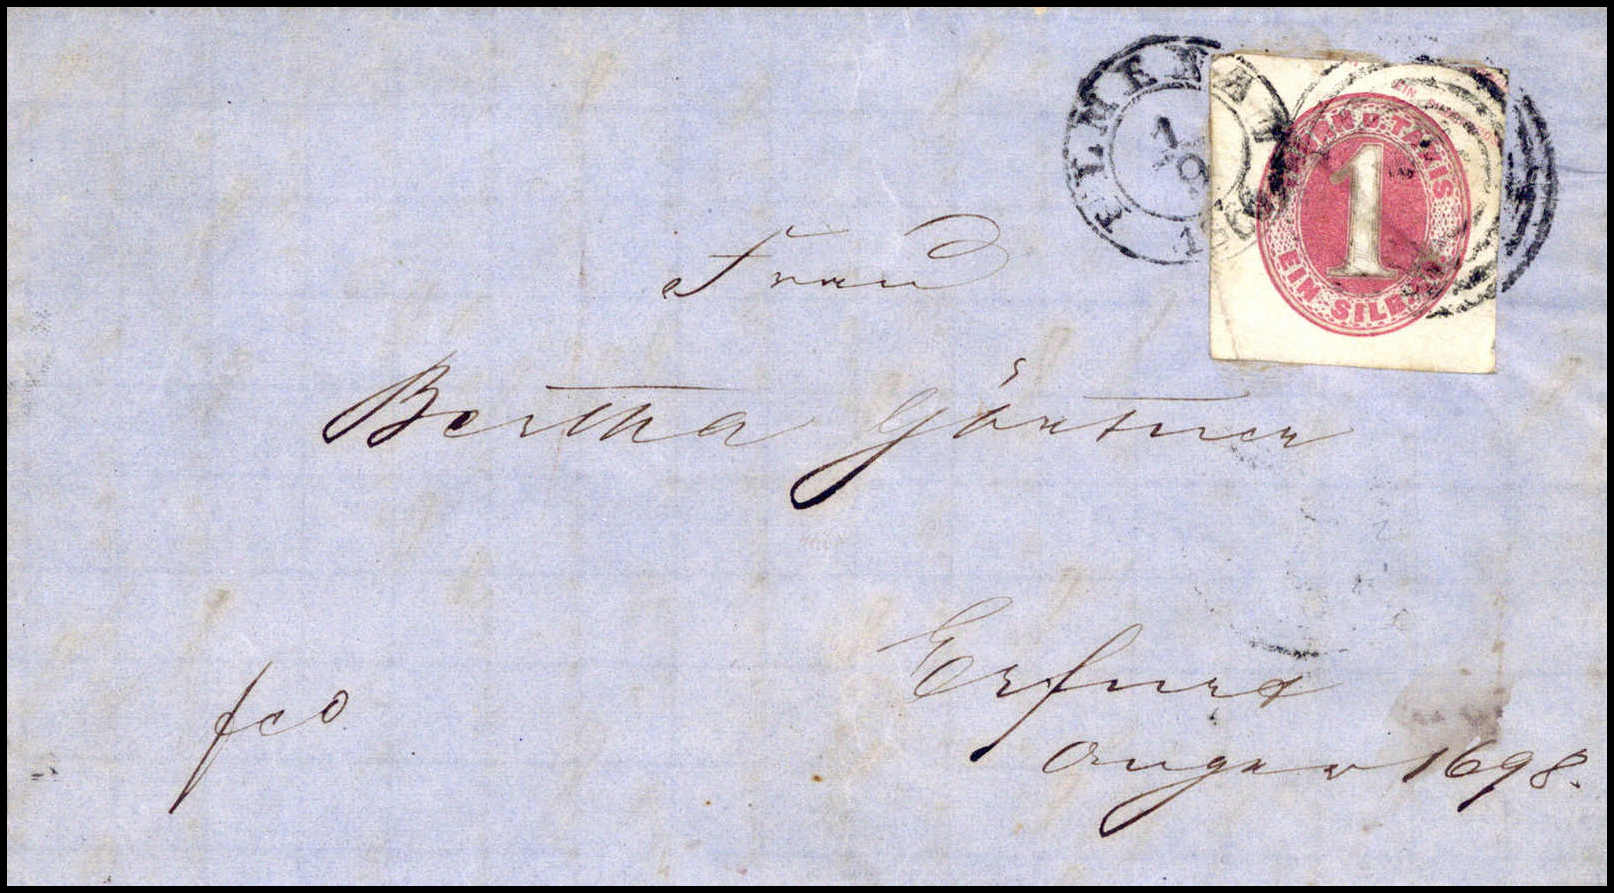 ILMENAU
1
THURN U. TAXIS
1
EIN SILB
Frau
Bertha Gärtner
Erfurt
fco
Anger 1698.